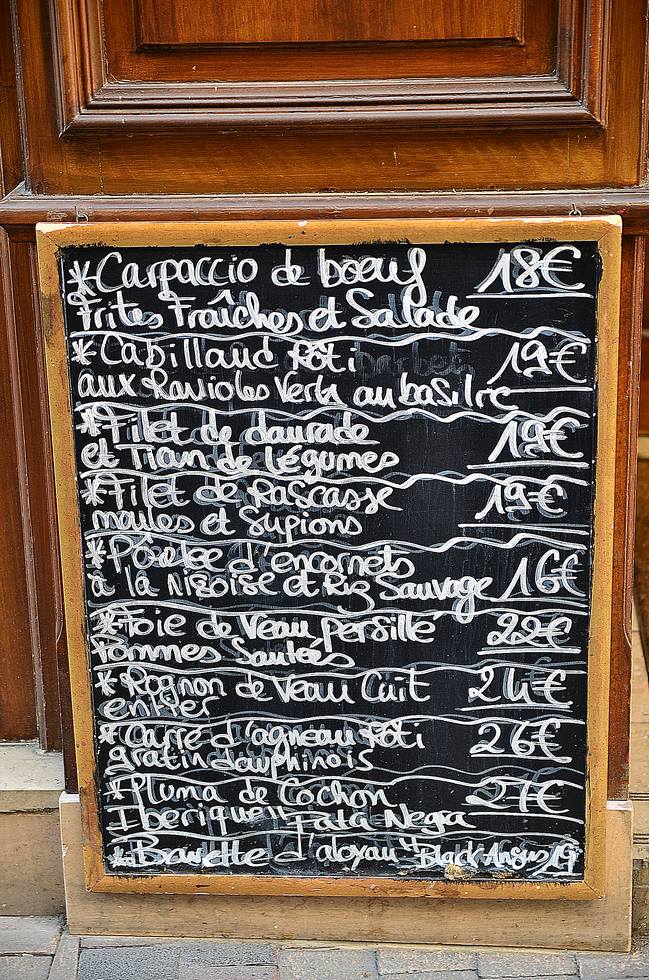 *Carpaccio de boeuf 18€
Frites Fraîches et Salade
*Cabillaud Rôti 19€
aux Ravioles Verts au basilic
*Filet de daurade 19€
et Tian de légumes
*Filet de Rascasse 19€
moules et Supions
*Poêlée d'encornets
à la Niçoise et Riz Sauvage 16€
*Foie de Veau persillé 22€
Pommes Sautées
*Rognon de Veau Cuit 24€
entier
*Carré d'agneau Rôti 26€
gratin dauphinois
*Pluma de Cochon 27€
Iberique Pata Negra
*Bavette d'aloyau "Black Angus 19